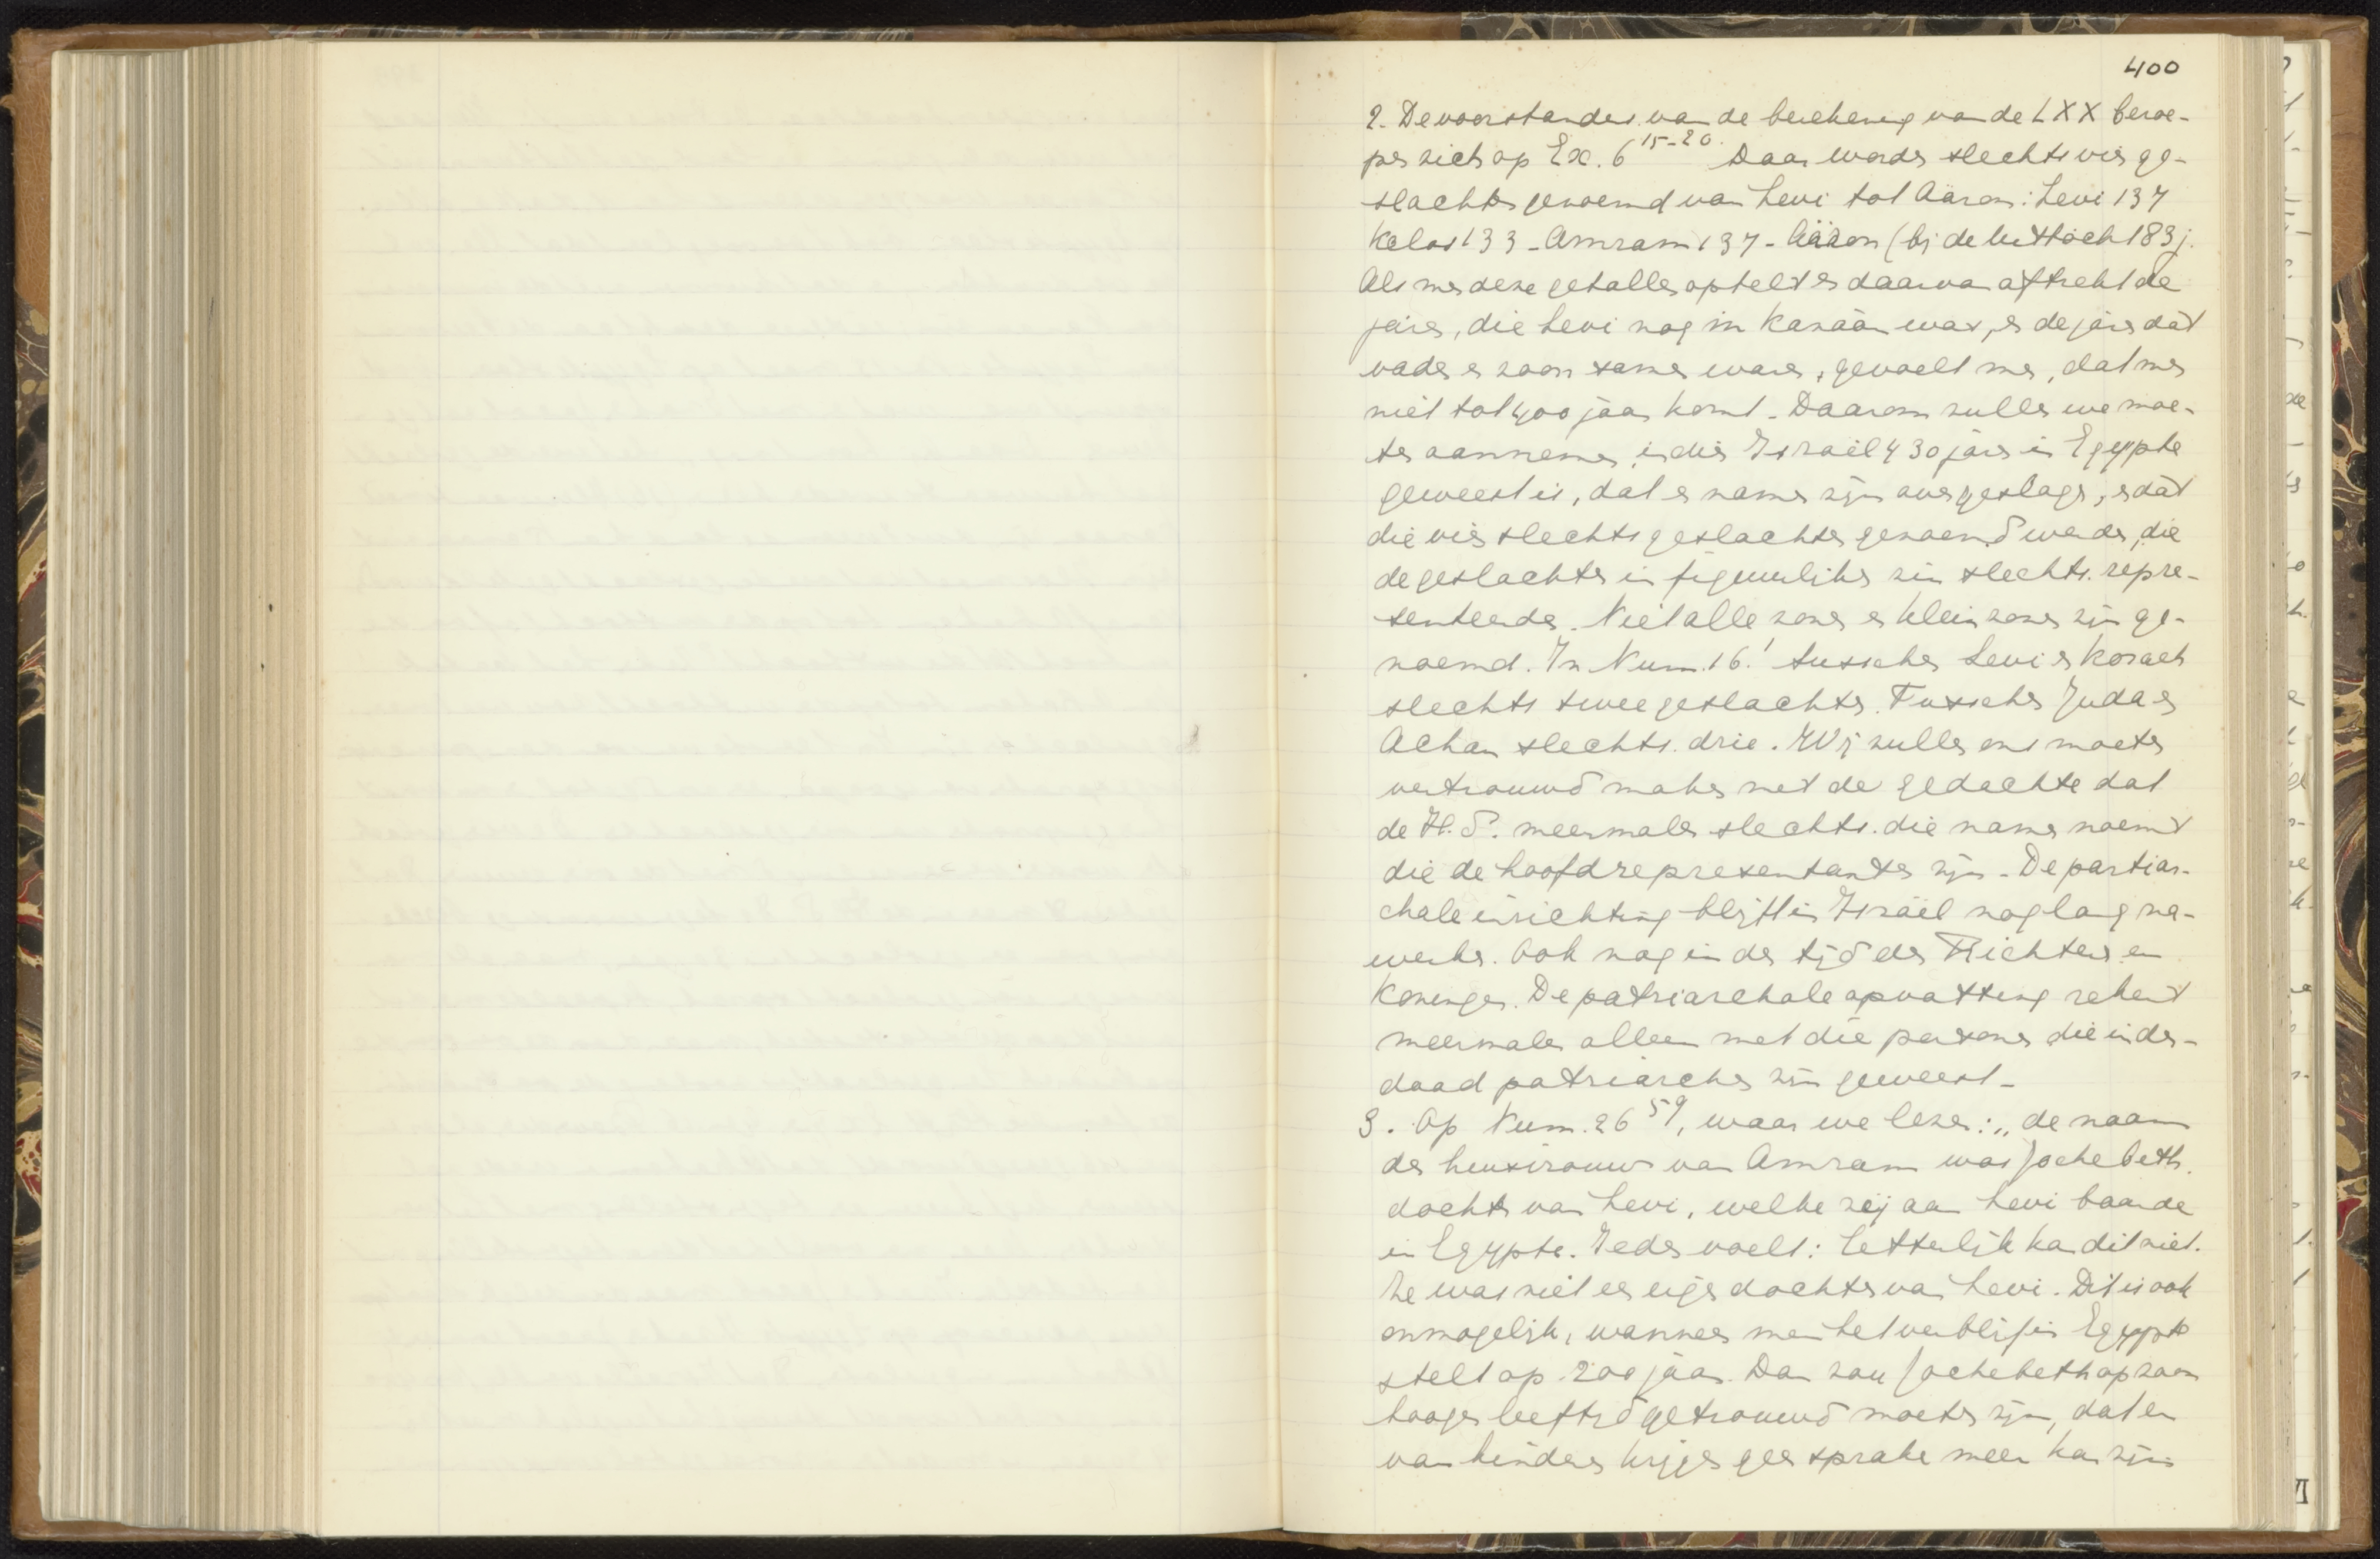 400
2. De voorstanders van de berekening van de LXX beroe-
pen zich op Ex. 6 15-20. Daar worden slechts vier ge-
slachten genoemd van Levi tot Aäron: Levi 137
Kelas 133 - Amram 137 - Aäron (bij de uittocht 183 j.
Als men deze getallen optelt en daarvan aftrekt de
jaren, die Levi nog in Kanaän was, en de jaren dat
vader en zoon samen waren, gevoelt men, dat men
niet tot 400 jaar komt. Daarom zullen we moe-
ten aannemen, indien Israël 430 jaren in Egypte
geweest is, dat er namen zijn overgeslagen, en dat
die vier slechts geslachten genoemd werden, die
de geslachten in figuurlijken zin slechts repre-
senteerden. Niet alle zonen en kleinzonen zijn ge-
noemd. In Num. 16:1 tusschen Levi en Korach
slechts twee geslachten. Tusschen Juda en
Achan slechts drie. Wij zullen ons moeten
vertrouwd maken met de gedachte dat
de H.S. meermalen slechts die namen noemt
die de hoofdrepresentanten zijn. De partiar-
chale inrichting blijft in Israël nog lang na-
werken. Ook nog in den tijd der Richteren en
Koningen. De patriarchale opvatting rekent
meermalen alleen met die personen die inder-
daad patriarchen zijn geweest.
3. Op Num. 26 59, waar we lezen: „de naam
der huisvrouw van Amram was Jochebeth.
dochter van Levi, welke zij aan Levi baarde
in Egypte. Ieder voelt: Letterlijk kan dit niet.
Ze was niet een eigen dochter van Levi. Dit is ook
onmogelijk, wanneer men het verblijf in Egypte
stelt op 200 jaar. Dan zou Jochebeth op zoon
hoogen leeftijd getrouwd moeten zijn, dat er
van kinderen krijgen geen sprake meer kan zijn